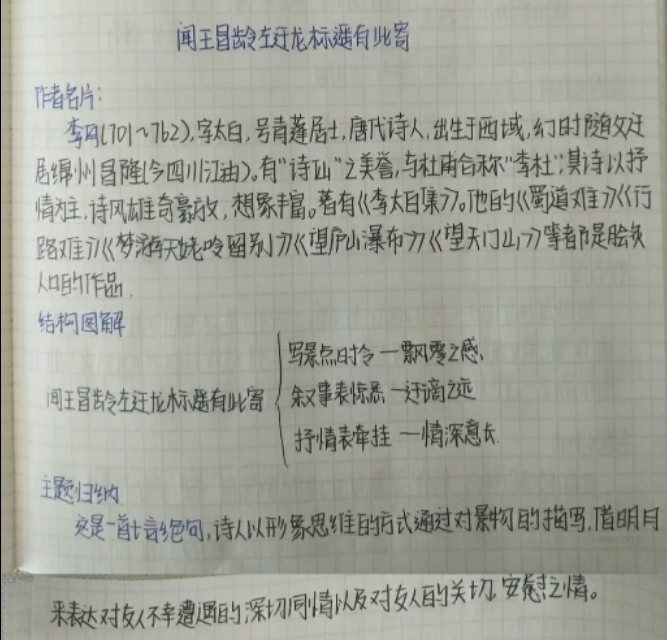 闻王昌龄左迁龙标遥有此寄
作者名片:
李白(701~762),字太白,号青莲居士,唐代诗人,出生于西域,幼时随父迁
居绵州昌隆(今四川江油)。有“诗仙”之美誉,与杜甫合称“李杜”;其诗以抒
情为主,诗风雄奇豪放,想象丰富。著有《李太白集》。他的《蜀道难》《行
路难》《梦游天姥吟留别》《望庐山瀑布》《望天门山》等都是脍炙
人口的作品.
结构图解
闻王昌龄左迁龙标遥有此寄
写景点时令—飘零之感
叙事表惊悉—迁谪之远
抒情表牵挂—情深意长
主题归纳
这是一首七言绝句,诗人以形象思维的方式通过对景物的描写,借明月
来表达对友人不幸遭遇的深切同情以及对友人的关切、安慰之情。